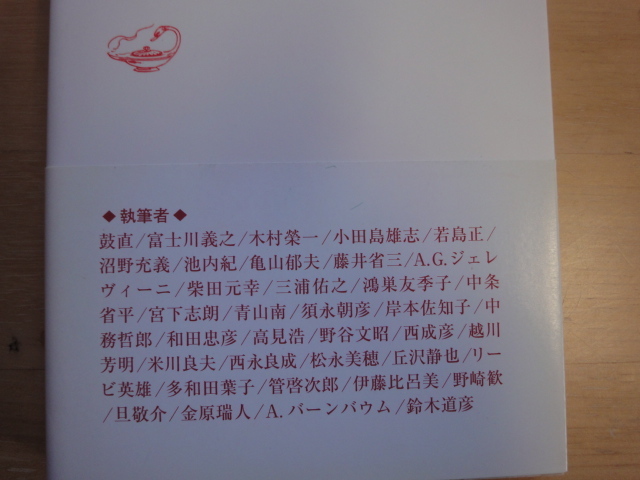 ◆執筆者◆
鼓直/富士川義之/木村榮一/小田島雄志/若島正/
沼野充義/池内紀/亀山郁夫/藤井省三/A.G.ジェレ
ヴィーニ/柴田元幸/三浦佑之/鴻巣友季子/中条
省平/宮下志朗/青山南/須永朝彦/岸本佐知子/中
務哲郎/和田忠彦/高見浩/野谷文昭/西成彦/越川
芳明/米川良夫/西永良成/松永美穂/丘沢静也/リー
ビ英雄/多和田葉子/管啓次郎/伊藤比呂美/野崎歓
/旦敬介/金原瑞人/A.バーンバウム/鈴木道彦